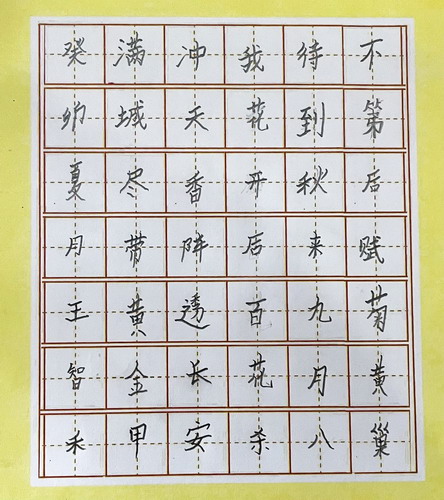 不第后赋菊黄巢
待到秋来九月八
我花开后百花杀
冲天香阵透长安
满城尽带黄金甲
癸卯夏月王智禾